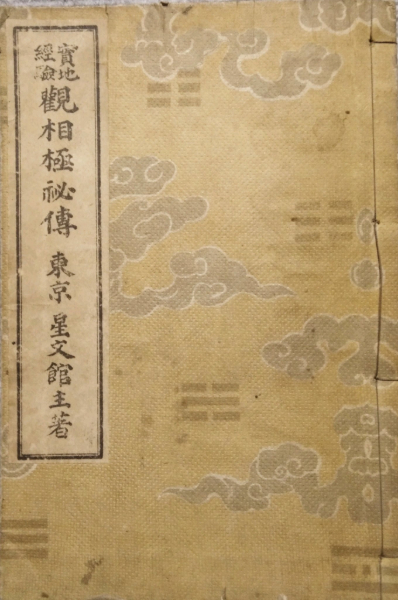 實地
經驗
觀相極祕傳 東京 星文館主著